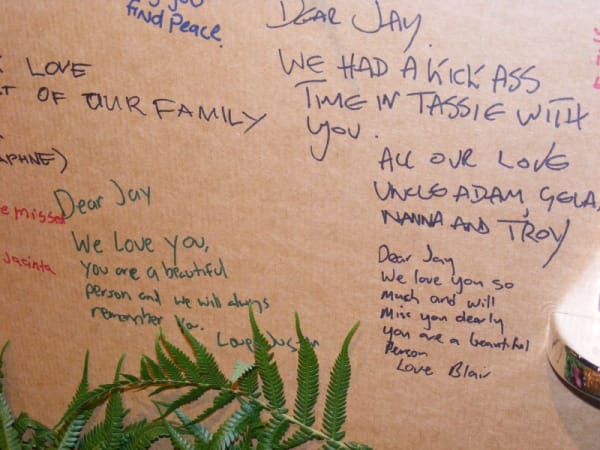 you
find Peace.
DEAR JAY.
WE HAD A KICK ASS
TIME IN TASSIE WITH
YOU.
ALL OUR LOVE
UNCLE ADAM,
NANNA AND TROY
LOVE
OF OUR FAMILY
missed
Jacinta
Dear Jay
We Love You,
You are a beautiful
person and we will always
remember You.
Love
Dear Jay
We love you so
Much and will
Miss you dearly
you are a beautiful
Person
Love Blair